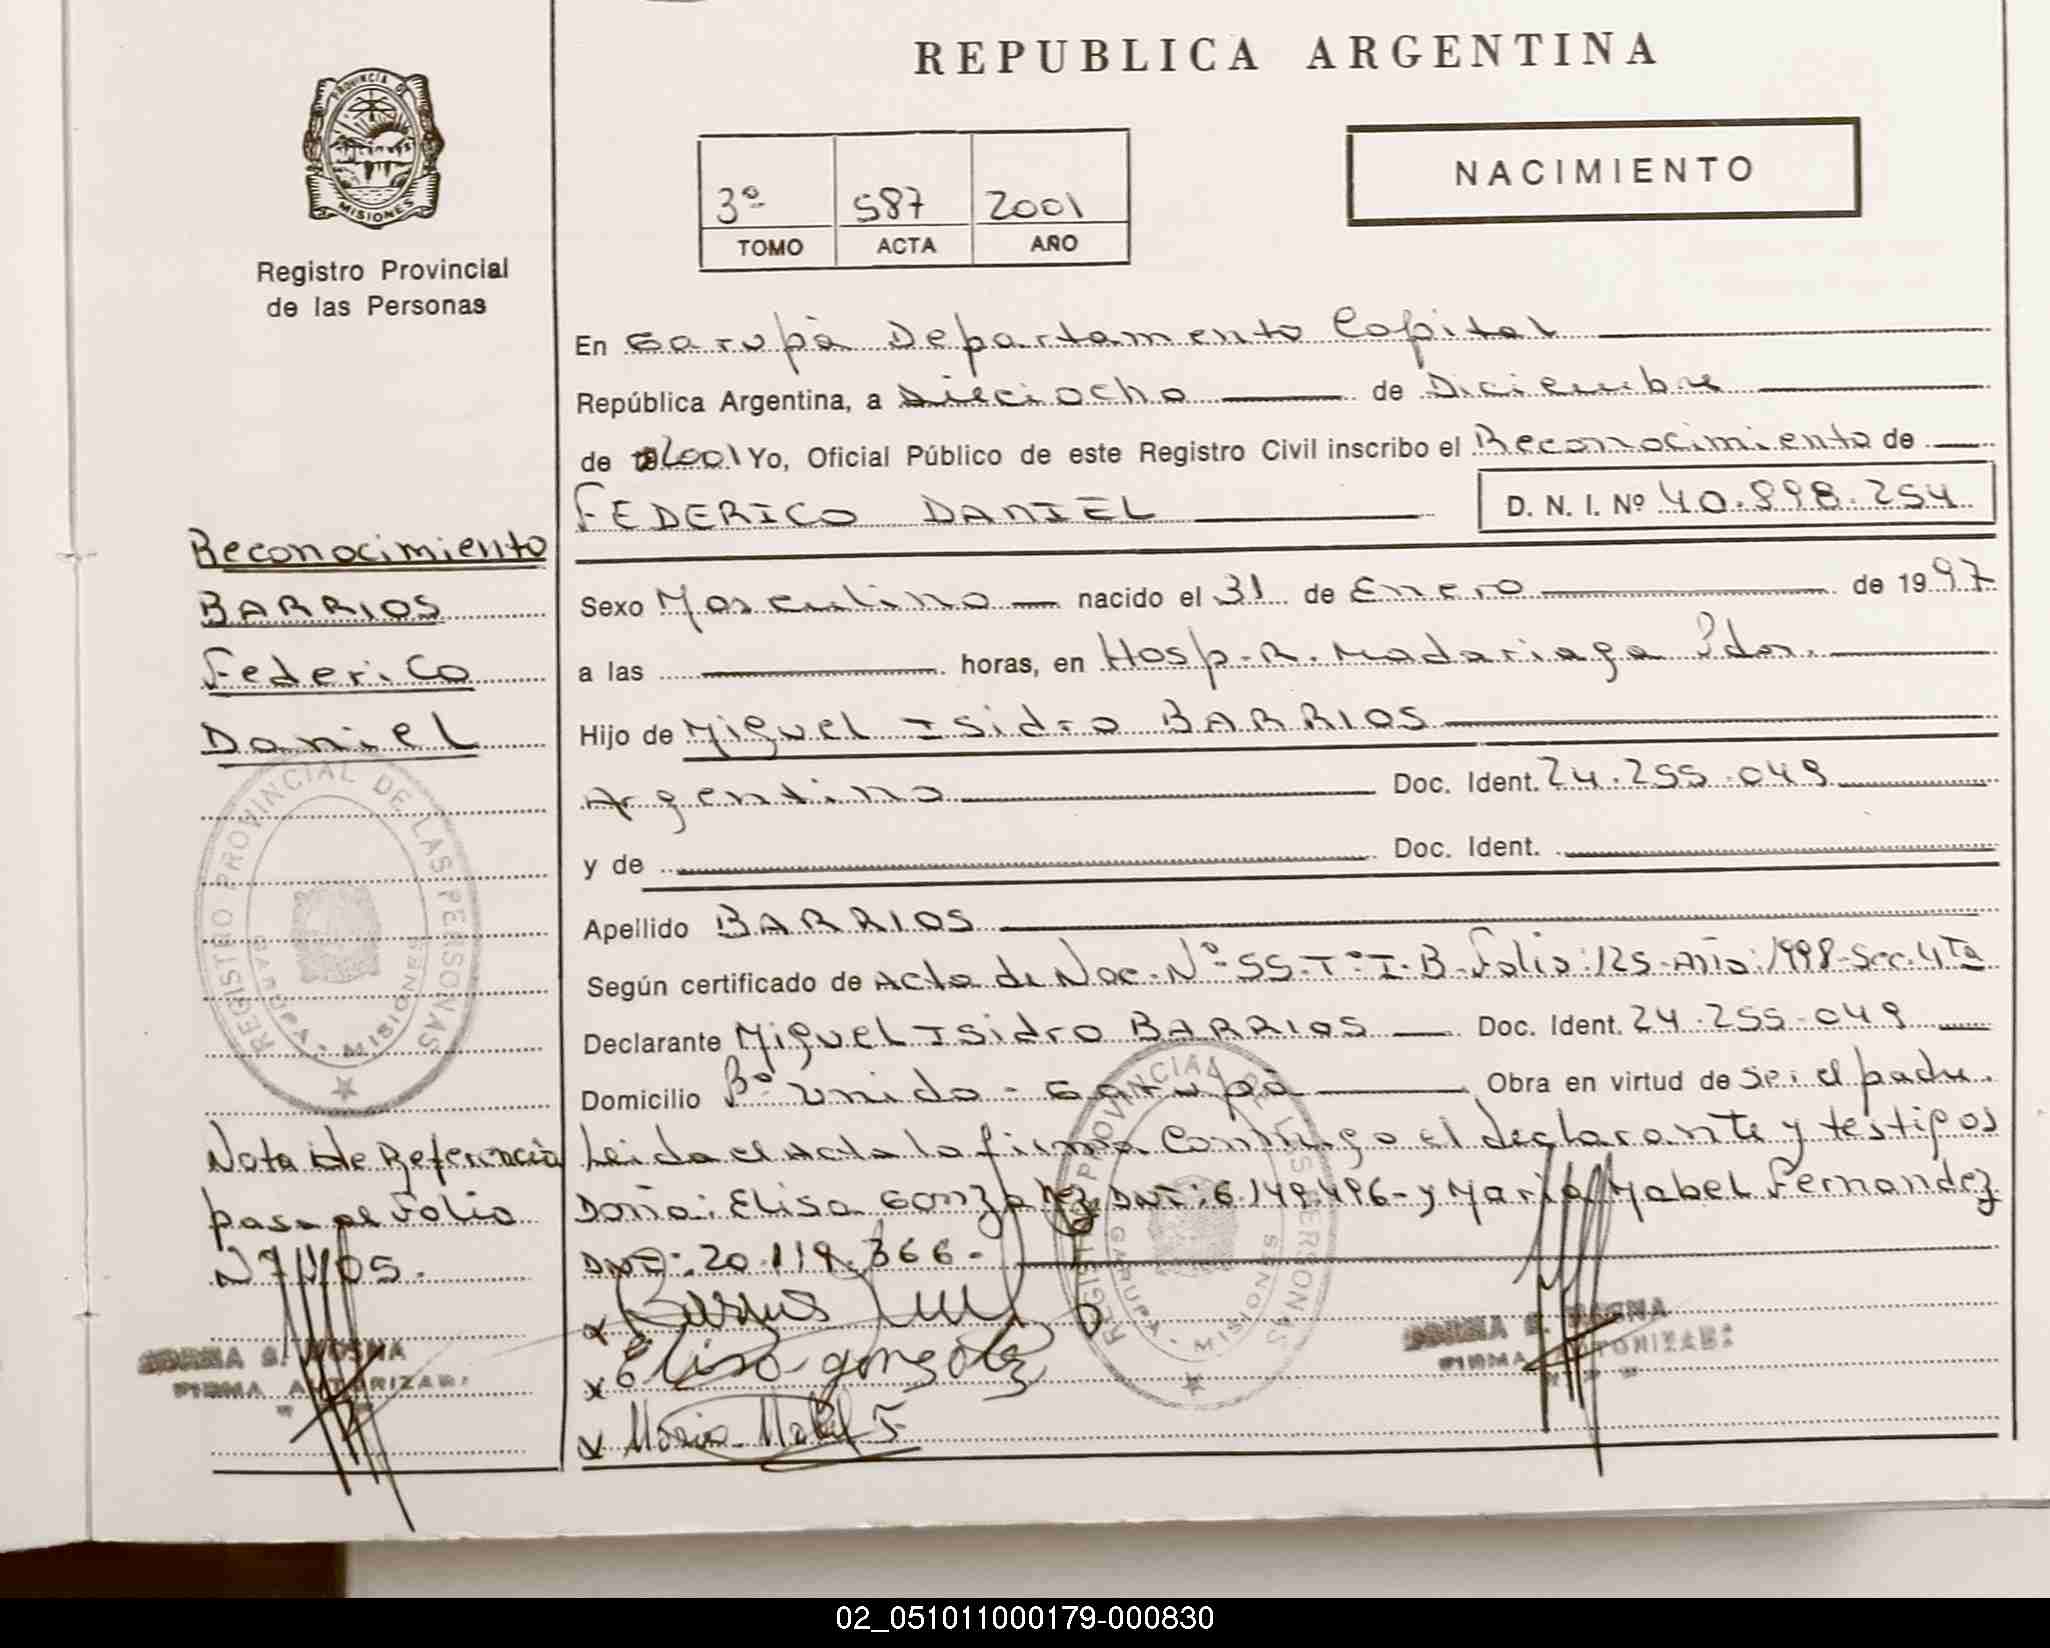 PROVINCIA DE
MISIONES
Registro Provincial
de las Personas
REPUBLICA ARGENTINA
3º 587 2001
TOMO ACTA AÑO
NACIMIENTO
En Garupà Departamento Capital
República Argentina, a Dieciocho de Diciembre
de 2001 Yo, Oficial Público de este Registro Civil inscribo el Reconocimiento de
FEDERICO DANIEL D. N. I. Nº 40.898.254
Sexo Masculino nacido el 31 de Enero de 1997
a las horas, en Hosp. R. Madariaga Pdas.
Hijo de Miguel Isidro BARRIOS
Argentino Doc. Ident. 24.255.049
y de Doc. Ident.
Apellido BARRIOS
Según certificado de Acta de Nac. Nº 55-Tº I-B-Folio: 125-Año: 1998-Sec. 4ta
Declarante Miguel Isidro BARRIOS Doc. Ident. 24.255-049
Domicilio Bº Unido - Garupà Obra en virtud de ser el padre.
Leida el Acta la firma Conmigo el declarante y testigos
Doña: Elisa Gonzalez DNI: 6.149.496- y Maria Mabel Fernandez
DNI: 20.119.366-
x Barrios
x Elisa gonzalez
x Maria Mabel F.
Reconocimiento
BARRIOS
Federico
Daniel
REGISTRO PROVINCIAL DE LAS PERSONAS
GARUPA - MISIONES
Nota de Referencia
pasa al Folio
Nº
FIRMA AUTORIZADA
REGISTRO PROVINCIAL DE LAS PERSONAS
GARUPA - MISIONES
FIRMA AUTORIZADA
02_051011000179-000830